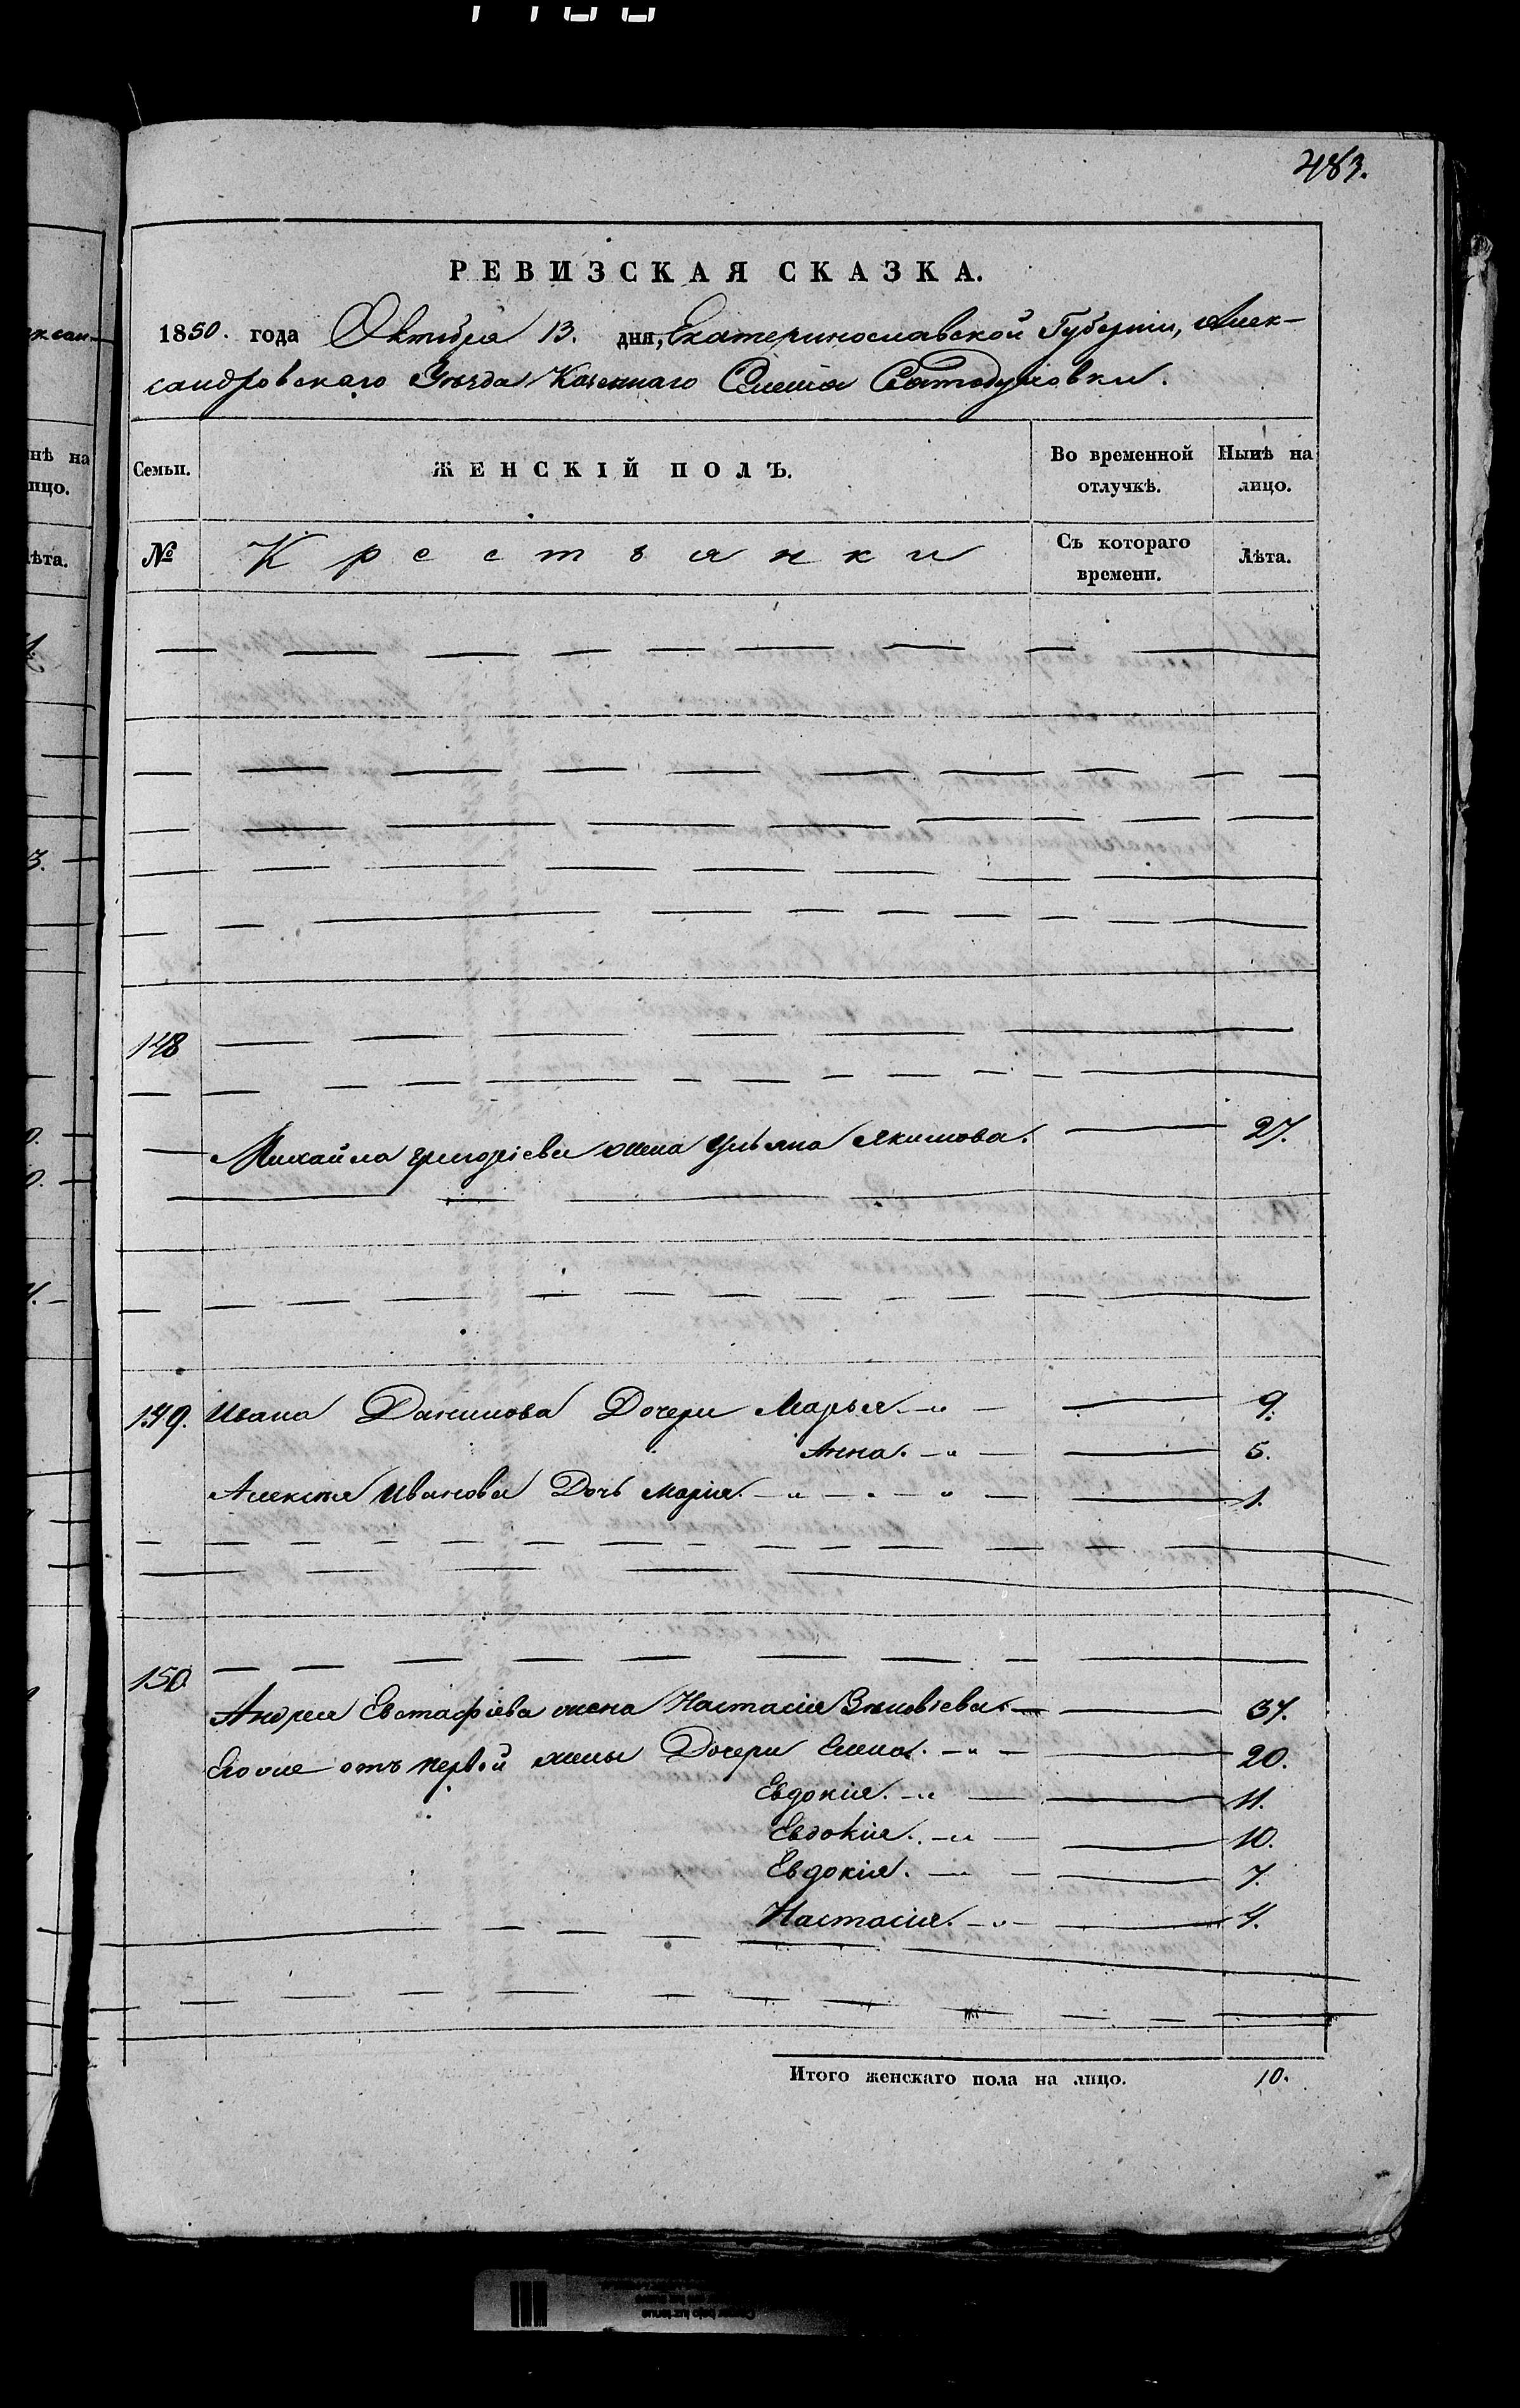 483.
РЕВИЗСКАЯ СКАЗКА.
1850. года Октября 13. дня, Екатеринославской Губерніи, Алек-
сандровскаго Уѣзда Казеннаго Селенія Святодуховки.
Семьи. ЖЕНСКІЙ ПОЛЪ. Во временной отлучкѣ. Нынѣ на лицо.
№ Крестьянки Съ котораго времени. Лѣта.
148
Михайла Григоріева жена Ульяна Якимова. 27.
149. Ивана Данилова Дочери Марья. 9.
Анна. 5.
Алексѣя Иванова Дочь Марія. 1.
150
Андрея Евстафіева жена Настасія Зѣновіева. 37.
Его же отъ первой жены Дочери Елена. 20.
Евдокія. 11.
Евдокія. 10.
Евдокія. 7.
Настасія. 4.
Итого женскаго пола на лицо. 10.